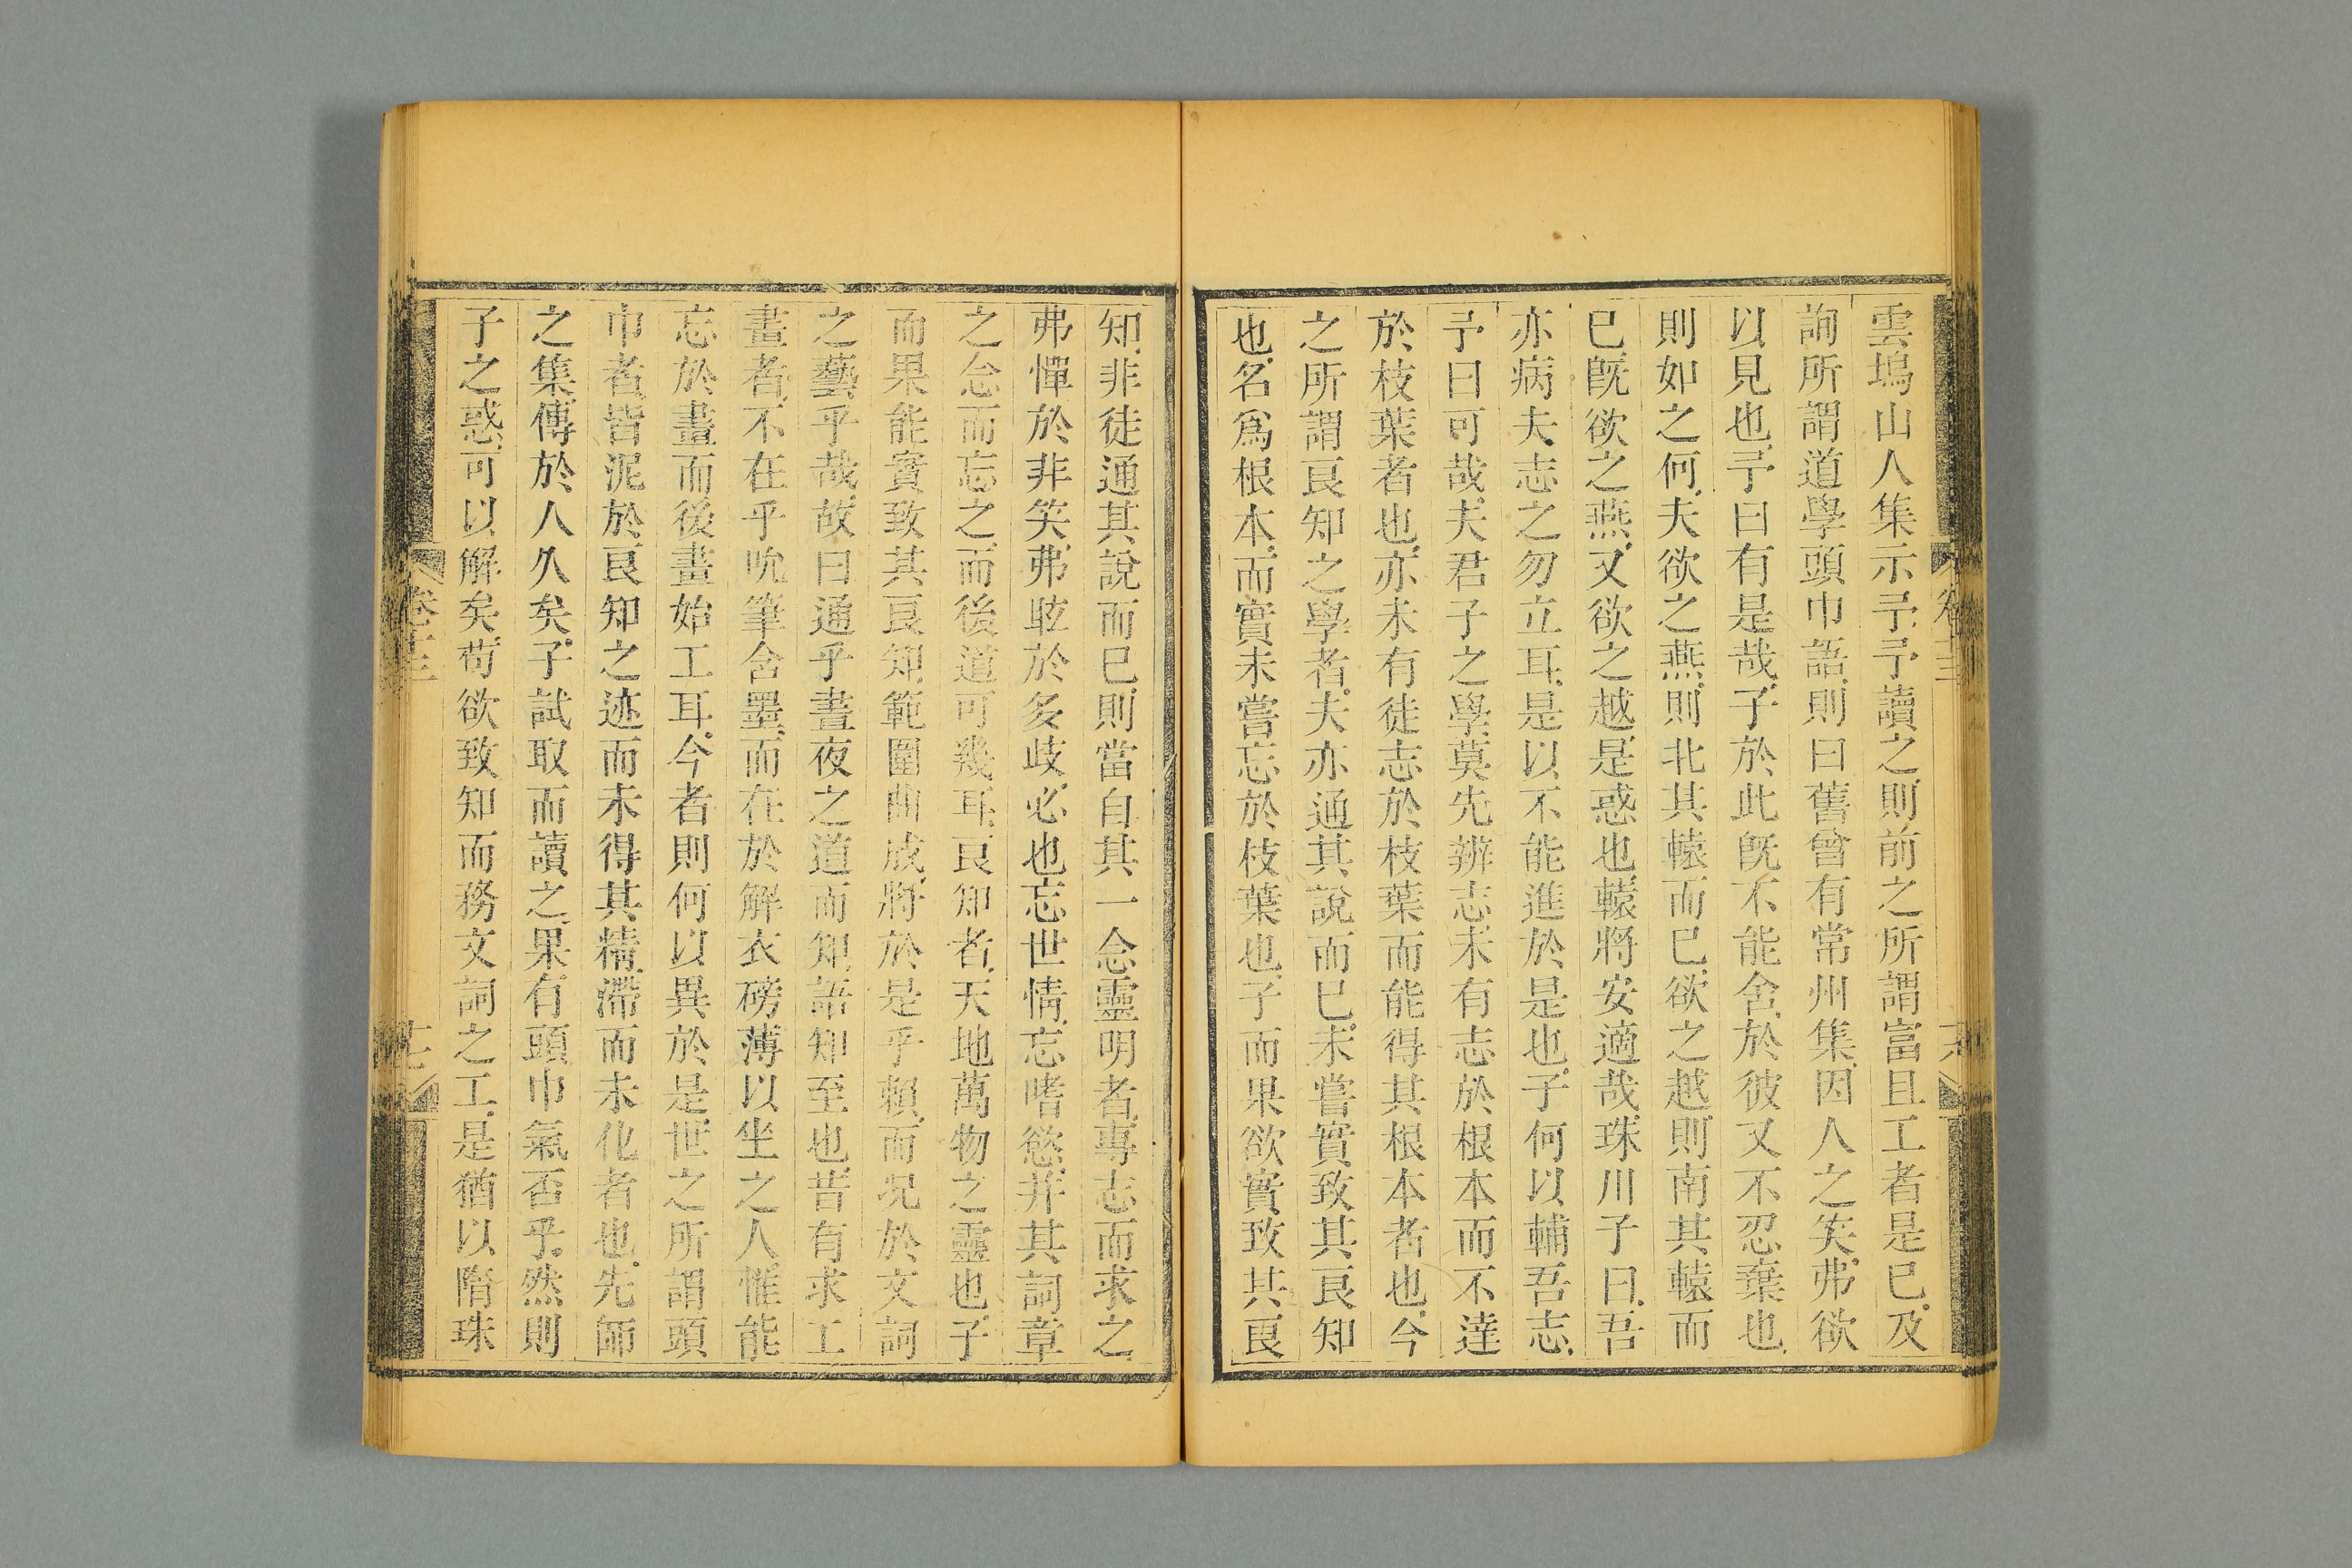 雲塢山人集示予.予讀之.則前之所謂富且工者是已.及
詢所謂道學頭巾語.則曰舊曾有常州集.因人之笑.弗欲
以見也.予曰有是哉.子於此旣不能舍.於彼又不忍棄也.
則如之何.夫欲之燕.則北其轅而已.欲之越.則南其轅而
已.旣欲之燕.又欲之越.是惑也.轅將安適哉.珠川子曰.吾
亦病夫志之勿立耳.是以不能進於是也.子何以輔吾志.
予曰可哉.夫君子之學.莫先辨志.未有志於根本而不達
於枝葉者也.亦未有徒志於枝葉而能得其根本者也.今
之所謂良知之學者.夫亦通其說而已.未嘗實致其良知
也.名爲根本.而實未嘗忘於枝葉也.子而果欲實致其良
知.非徒通其說而已.則當自其一念靈明者.專志而求之.
弗憚於非笑.弗眩於多歧.必也忘世情.忘嗜慾.并其詞章
之念而忘之.而後道可幾耳.良知者.天地萬物之靈也.子
而果能實致其良知.範圍曲成.將於是乎賴.而况於文詞
之藝乎哉.故曰通乎晝夜之道而知.語知至也.昔有求工
畫者.不在乎吮筆含墨.而在於解衣磅薄以坐之人.惟能
忘於畫而後畫始工耳.今者則何以異於是.世之所謂頭
巾者.皆泥於良知之迹而未得其精.滯而未化者也.先師
之集.傳於人久矣.子試取而讀之.果有頭巾氣否乎.然則
子之惑.可以解矣.苟欲致知而務文詞之工.是猶以隋珠
卷十三
十七